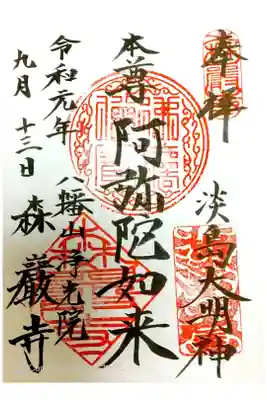 奉拝
淡島大明神
本尊
阿弥陀如来
八幡山浄光院
森巌寺
令和元年
九月十三日